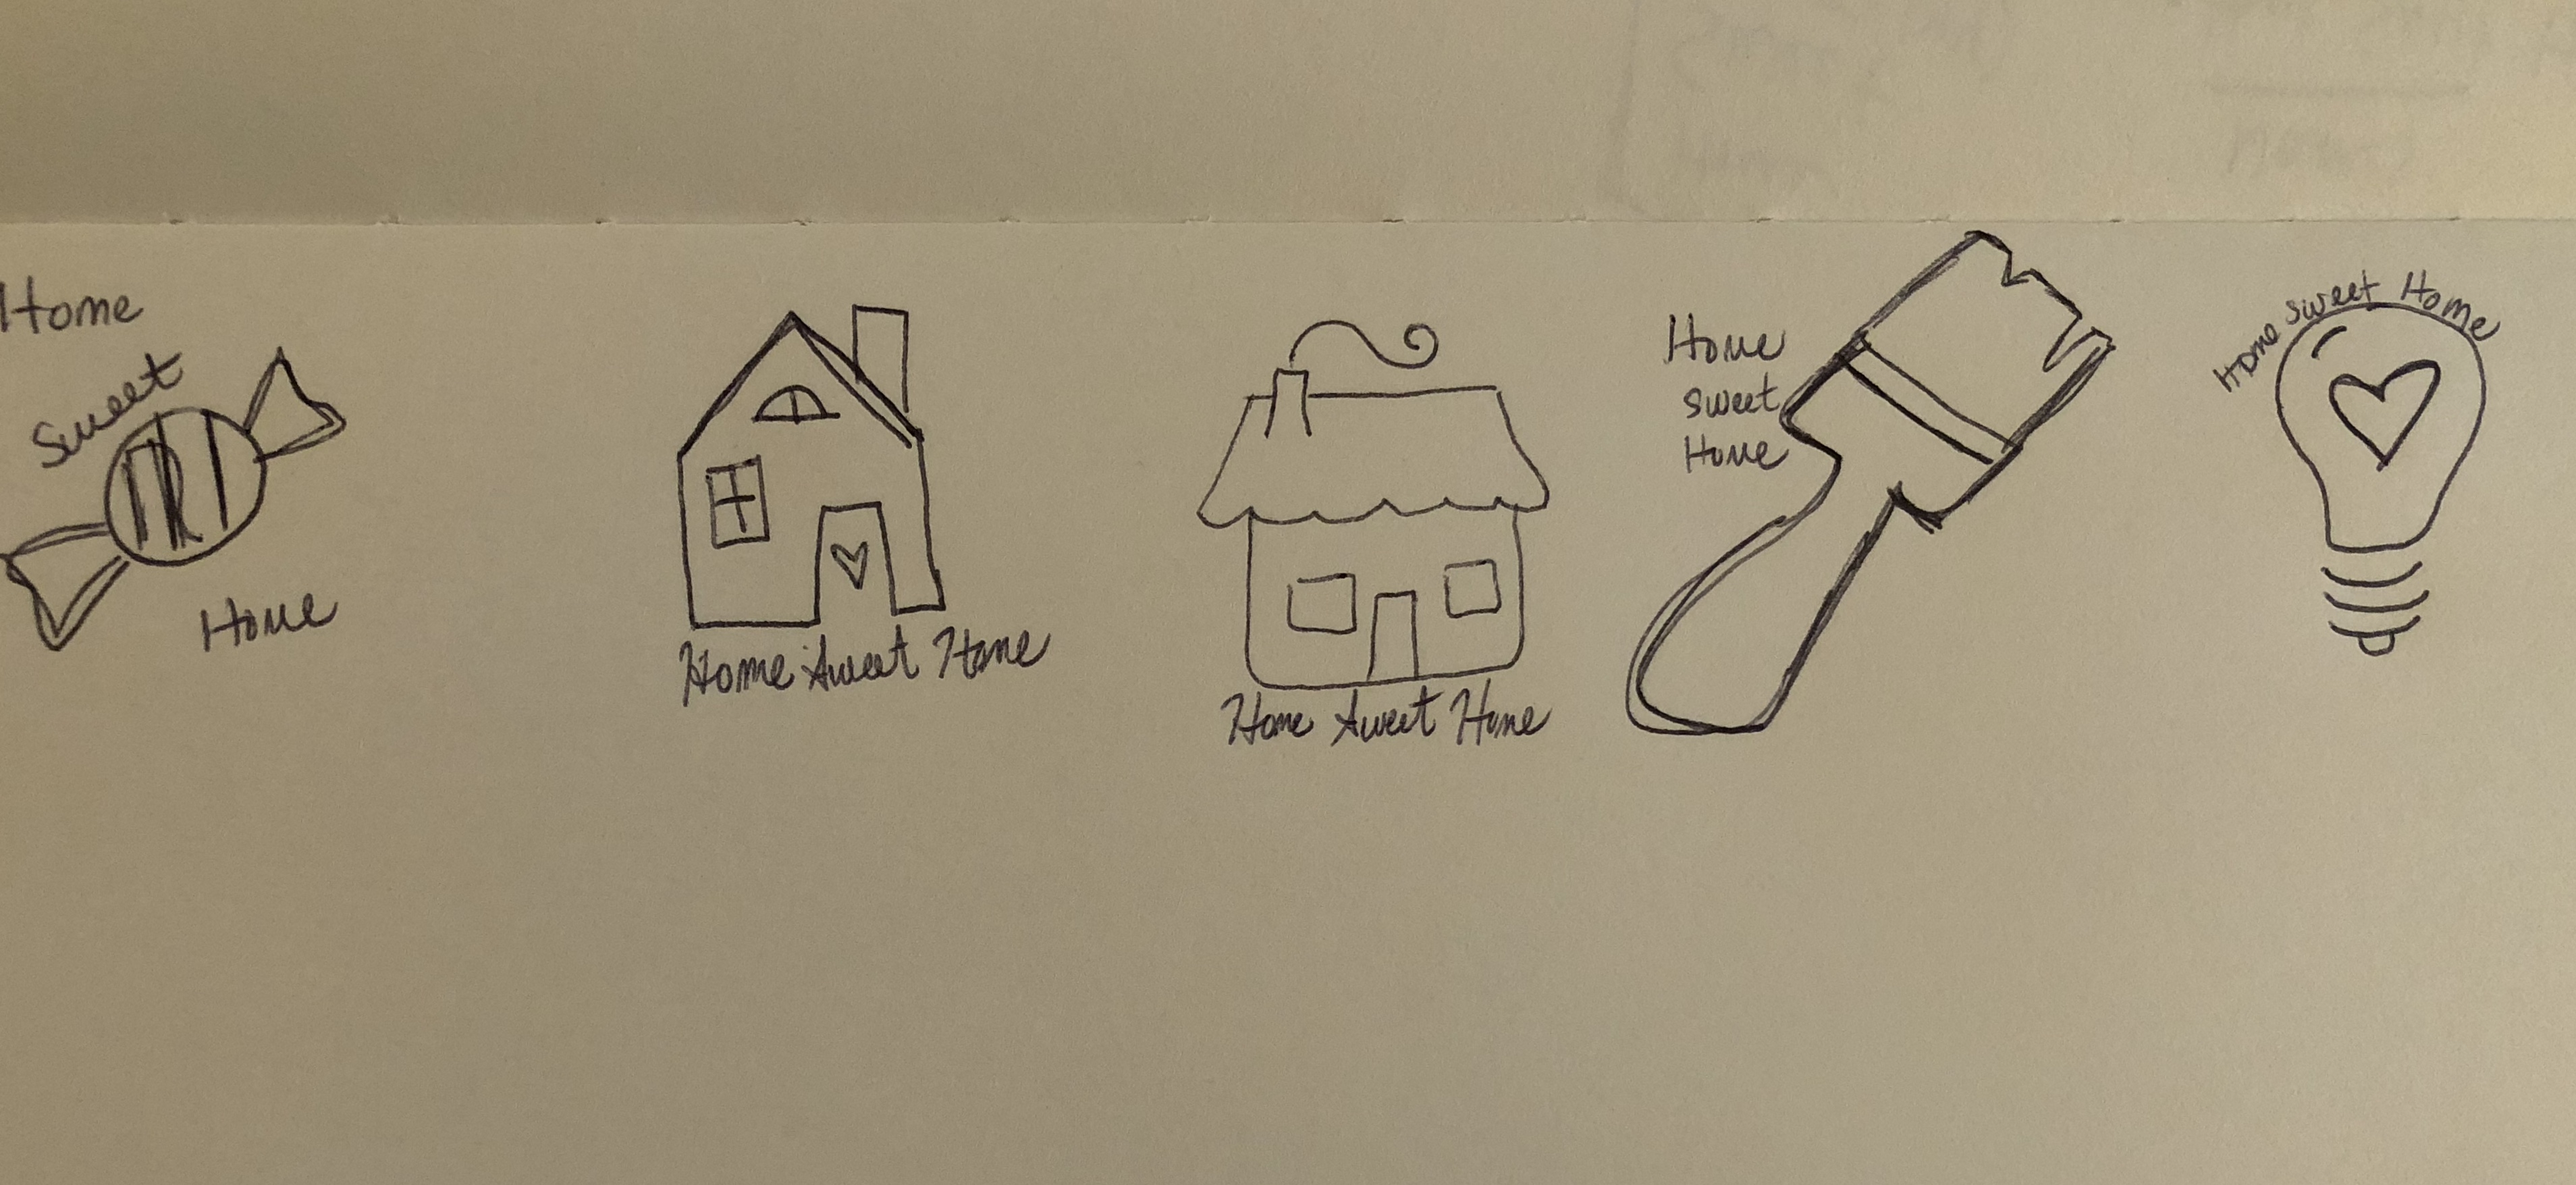 Home
Sweet
Home
Home Sweet Home
Home Sweet Home
Home
Sweet
Home
Home Sweet Home